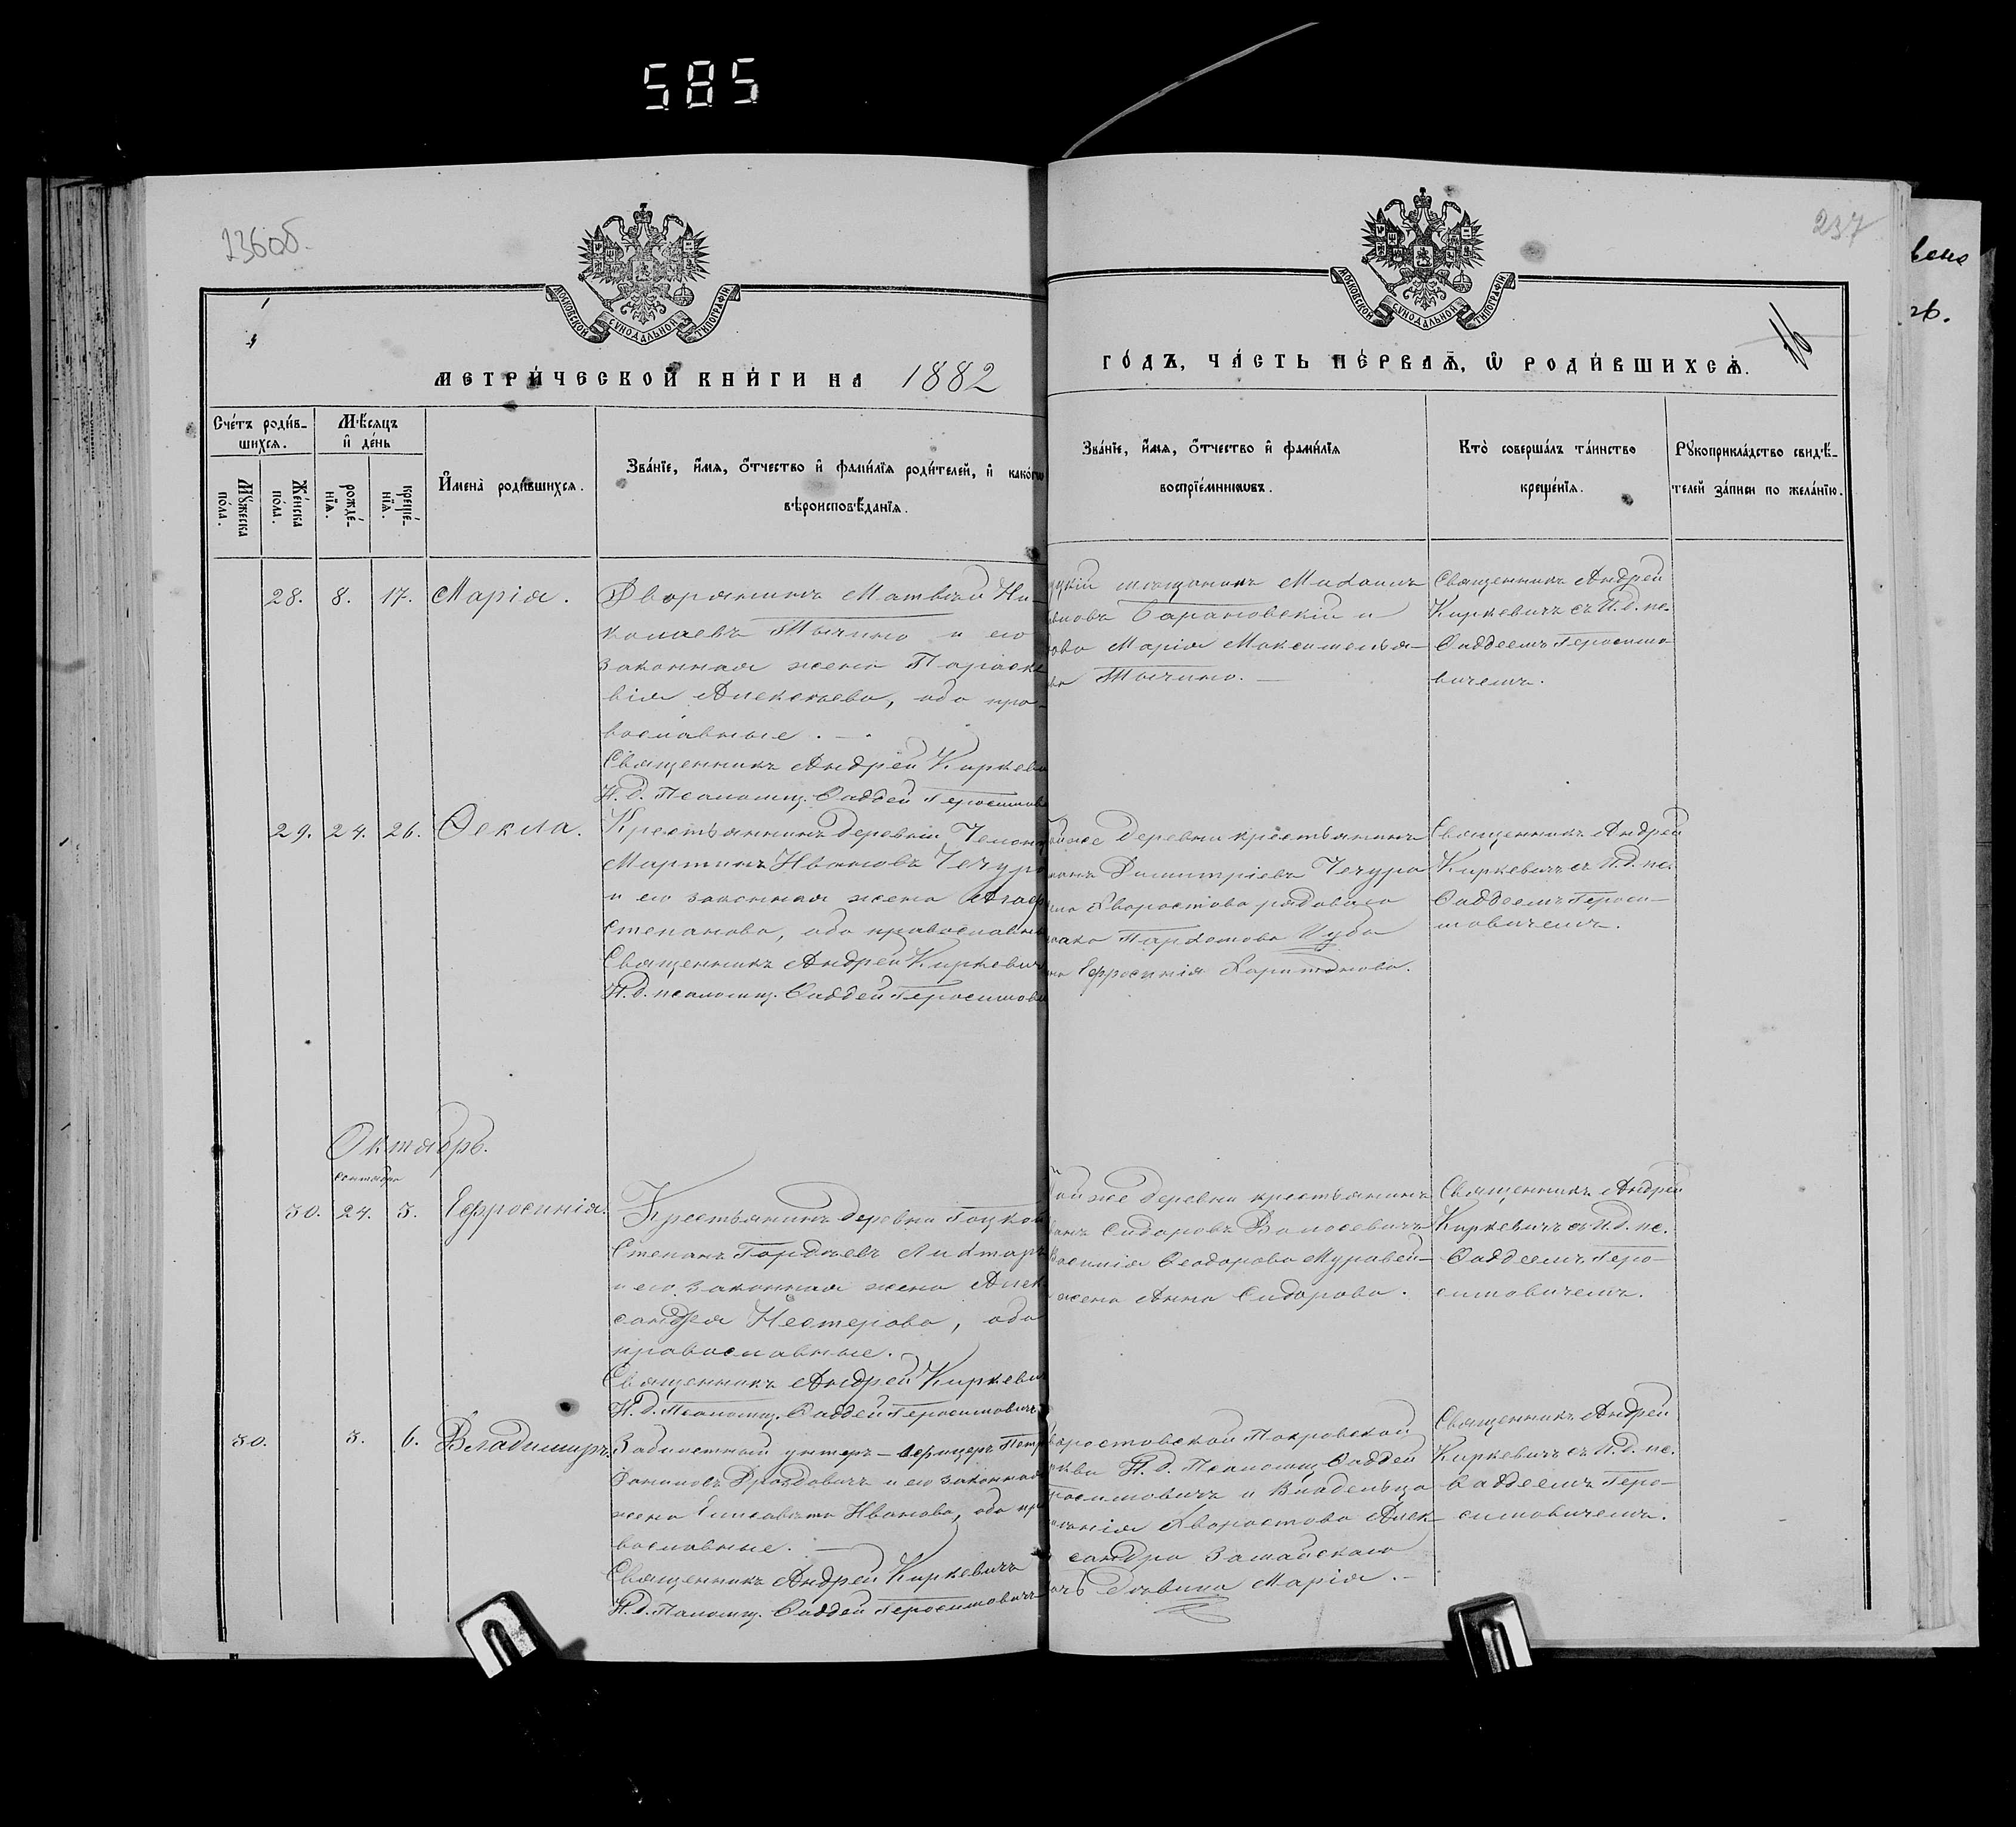 585
236об.
237
МОСКОВСКОЙ СѴНОДАЛЬНОЙ ТИПОГРАФІИ
МОСКОВСКОЙ СѴНОДАЛЬНОЙ ТИПОГРАФІИ
16
МЕТРИ́ЧЕСКОЙ КНИ́ГИ НА 1882
ГО́ДЪ, ЧА́СТЬ ПЕ́РВАѦ, Ѡ РОДИ́ВШИХСѦ.
Сче́тъ роди́в-
шихся.
Мꙋ́жеска по́ла.
Же́нска по́ла.
Мѣ́сяцъ
и҆ де́нь
рожде́-
нїя.
креще́-
нїя.
И҆мена̀ роди́вшихся.
Зва́нїе, и҆́мя, ѻ҆́тчество и҆ фами́лїя роди́телей, и҆ како́гѡ
вѣроисповѣ́данїя.
Зва́нїе, и҆́мя, ѻ҆́тчество и҆ фами́лїя
воспрїе́мникѡвъ.
Кто̀ соверша́лъ та́инство
креще́нїя.
Рꙋкоприкла́дство свидѣ́-
телей за́писи по жела́нїю.
28. 8. 17. Марія.
Дворянинъ Матвѣй Ни-
колаевъ Тычино и его
законная жена Параске
вія Алексѣева, оба пра-
вославные. —
Священникъ Андрей Киркеви
И. д. Псаломщ. Ѳаддей Герасимов
мѣщанинъ Михаилъ
Барановскій и
Марія Максимелья-
Тычино. —
Священникъ Андрей
Киркевичъ съ И. д. пс.
Ѳаддеемъ Герасимо-
вичемъ.
29. 24. 26. Ѳекла.
Крестьянинъ деревни
Мартинъ Ивановъ Чечура
и его законная жена Агаф
Степанова, оба православн
Священникъ Андрей Киркевич
И. д. псаломщ. Ѳаддей Герасимов
же деревни крестьянинъ
Димитріевъ Чечура
Хворостова рядоваго
Цуба
Ефросинія Харитонова.
Священникъ Андрей
Киркевичъ съ И. д. пс.
Ѳаддеемъ Гераси-
мовичемъ.
Октябрь.
сентября
30. 24. 3. Ефросинія.
Крестьянинъ деревни Гоцкой
Степанъ Гордѣевъ Лихтаръ
и его законная жена Алек-
сандра Нестерова, оба
православные.
Священникъ Андрей Киркевич
И. д. Псаломщ. Ѳаддей Герасимовичъ
той же деревни крестьянинъ
Сидоровъ Волосевичъ
Ѳеодорова Муравей-
жена Анна Сидорова.
Священникъ Андрей
Киркевичъ съ И. д. пс.
Ѳаддеемъ Гера-
симовичемъ.
30. 3. 6. Владимиръ.
унтеръ-офицеръ Петр
Дроздовичъ и его законная
жена Елисавета Иванова, оба пра
вославные. —
Священникъ Андрей Киркевичъ
И. д. Псаломщ. Ѳаддей Герасимовичъ
воростовской Покровской
И. д. Псаломщ. Ѳаддей
расимовичъ и владѣльца
Хворостова Алек-
сандра
Марія. —
Священникъ Андрей
Киркевичъ съ И. д. пс.
Ѳаддеемъ Гера-
симовичемъ.